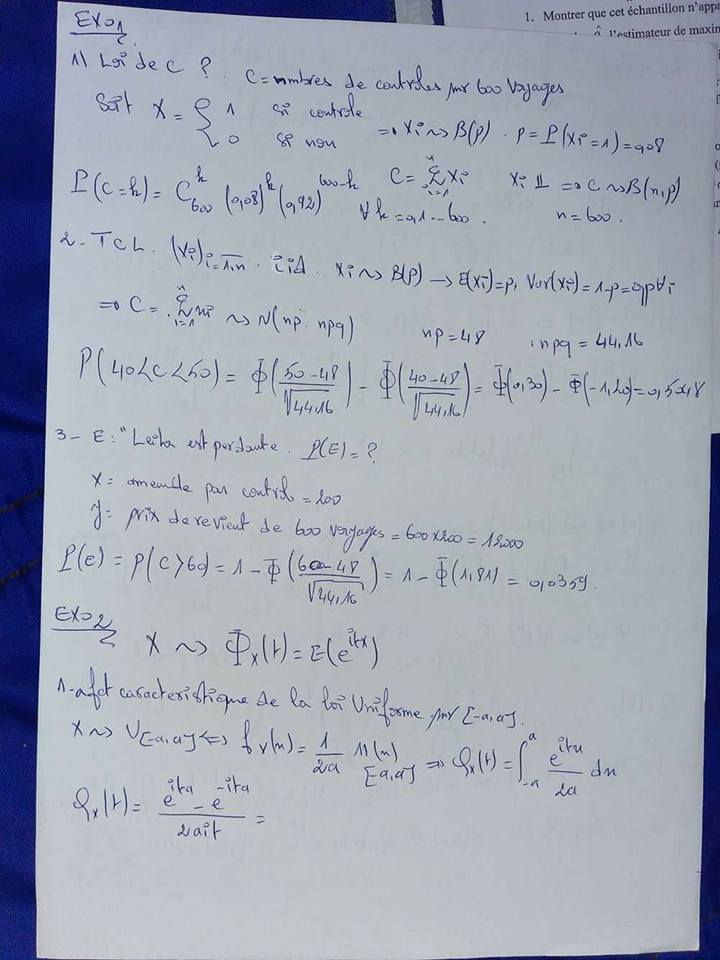 1. Montrer que cet échantillon n'appa
l'estimateur de maxim
EXO1
1) Loi de C ? C = nmbres de controles sur 600 voyages
Soit X = { 1 si controle
0 si non => Xi ~> B(p) . p = P(Xi = 1) = 0,08
P(C=k) = C_600^k (0,08)^k (0,92)^600-k ∀ k = 0,1...600. C = Σ_{i=1}^n Xi Xi ⊥ => C ~> B(n,p)
n = 600.
2- TCL. (Xi)i=1,n . iid. Xi ~> B(p) → E(Xi)=p, Var(Xi) = 1-p = qp ∀i
=> C = Σ_{i=1}^n xi ~> N(np, npq) np = 48 , npq = 44,16
P(40<C<50) = Φ((50-48)/√44,16) - Φ((40-48)/√44,16) = Φ(0,30) - Φ(-1,20) = 0,5048
3- E: "Leila est perdante. P(E) = ?
X = amende par control = 200
Y = prix de revient de 600 voyages = 600x200 = 12000
P(E) = P(C>60) = 1 - Φ((60-48)/√44,16) = 1 - Φ(1,81) = 0,0359.
EXO2
X ~> Φ_X(t) = E(e^{itx})
1- a fct caracteristique de la loi Uniforme sur [-a,a].
X ~> U[-a,a] <=> f_X(x) = 1/2a 1l(x) [-a,a] => φ_X(t) = ∫_{-a}^{a} e^{itx}/2a dx
φ_X(t) = (e^{ita} - e^{-ita})/2ait =